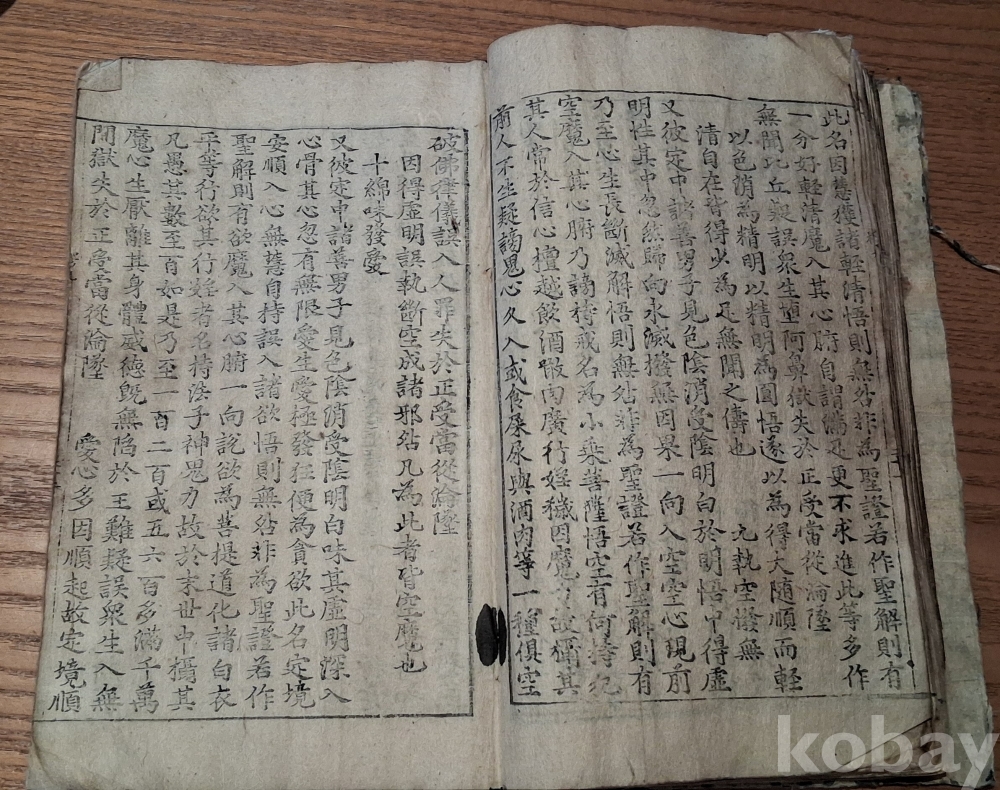 此名因慧獲諸輕清悟則無咎非為聖證若作聖解則有
一分好輕清魔入其心腑自謂滿足更不求進此等多作
無聞比丘疑誤眾生墮阿鼻獄失於正受當從淪墜
以色消為精明以精明為圓悟遂以為得大随順而輕
清自在皆得少為足無聞之儔也 九執空撥無
又彼定中諸善男子見色陰消受陰明白於明悟中得虛
明性其中忽然歸向永滅撥無因果一向入空空心現前
乃至心生長斷滅解悟則無咎非為聖證若作聖解則有
空魔入其心腑乃謗持戒名為小乘菩薩悟空有何持犯
其人常於信心檀越飲酒噉肉廣行婬穢因魔力故攝其
前人不生疑謗鬼心久入或食屎尿與酒肉等一種俱空
破佛律儀誤入人罪失於正受當從淪墜
因得虛明誤執斷空成諸邪咎凡為此者皆空魔也
十綿味發愛
又彼定中諸善男子見色陰消受陰明白味其虛明深入
心骨其心忽有無限愛生愛極發狂便為貪欲此名定境
安順入心無慧自持誤入諸欲悟則無咎非為聖證若作
聖解則有欲魔入其心腑一向說欲為菩提道化諸白衣
平等行欲其行婬者名持法子神鬼力故於末世中攝其
凡愚其數至百如是乃至一百二百或五六百多滿千萬
魔心生厭離其身體威德旣無陷於王難疑誤眾生入無
間獄失於正受當從淪墜 愛心多因順起故定境順
kobay